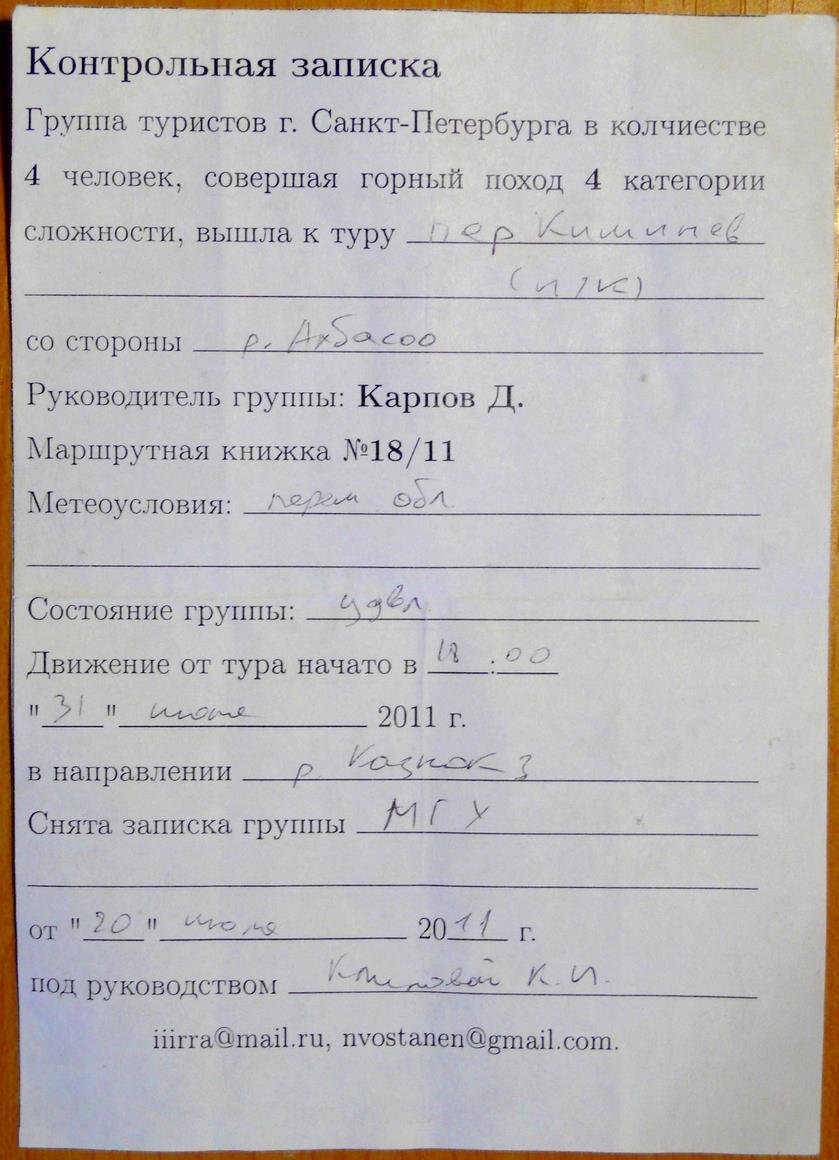 Контрольная записка
Группа туристов г. Санкт-Петербурга в колчиестве
4 человек, совершая горный поход 4 категории
сложности, вышла к туру пер Кишинев
(н/к)
со стороны р. Ахбасоо
Руководитель группы: Карпов Д.
Маршрутная книжка №18/11
Метеоусловия: перем обл
Состояние группы: удвл
Движение от тура начато в :00
"31" июля 2011 г.
в направлении р Казнок З
Снята записка группы МГУ
от "20" июля 2011 г.
под руководством К.И.
iiirra@mail.ru, nvostanen@gmail.com.